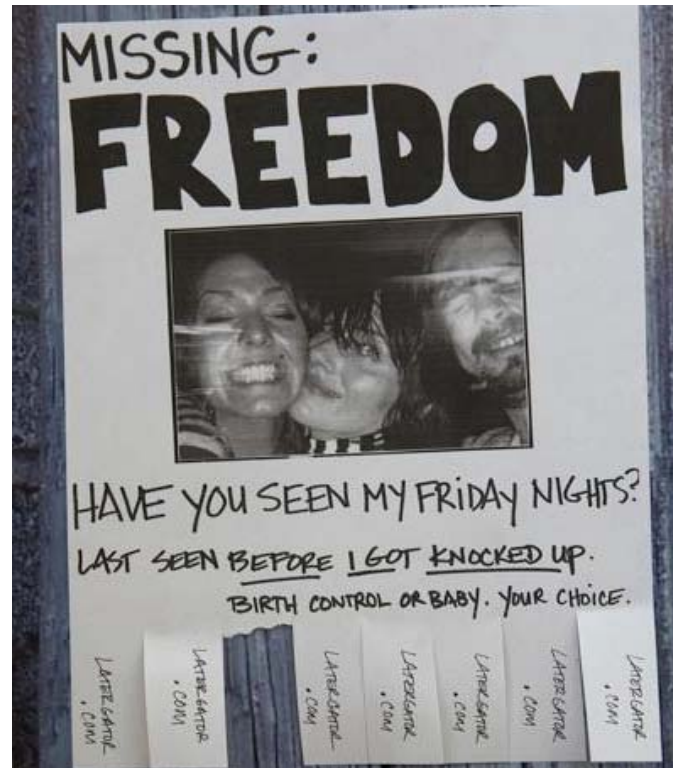 MISSING:
FREEDOM
HAVE YOU SEEN MY FRIDAY NIGHTS?
LAST SEEN BEFORE I GOT KNOCKED UP.
BIRTH CONTROL OR BABY. YOUR CHOICE.
LATERGATOR
.COM
LATERGATOR
.COM
LATERGATOR
.COM
LATERGATOR
.COM
LATERGATOR
.COM
LATERGATOR
.COM
LATERGATOR
.COM